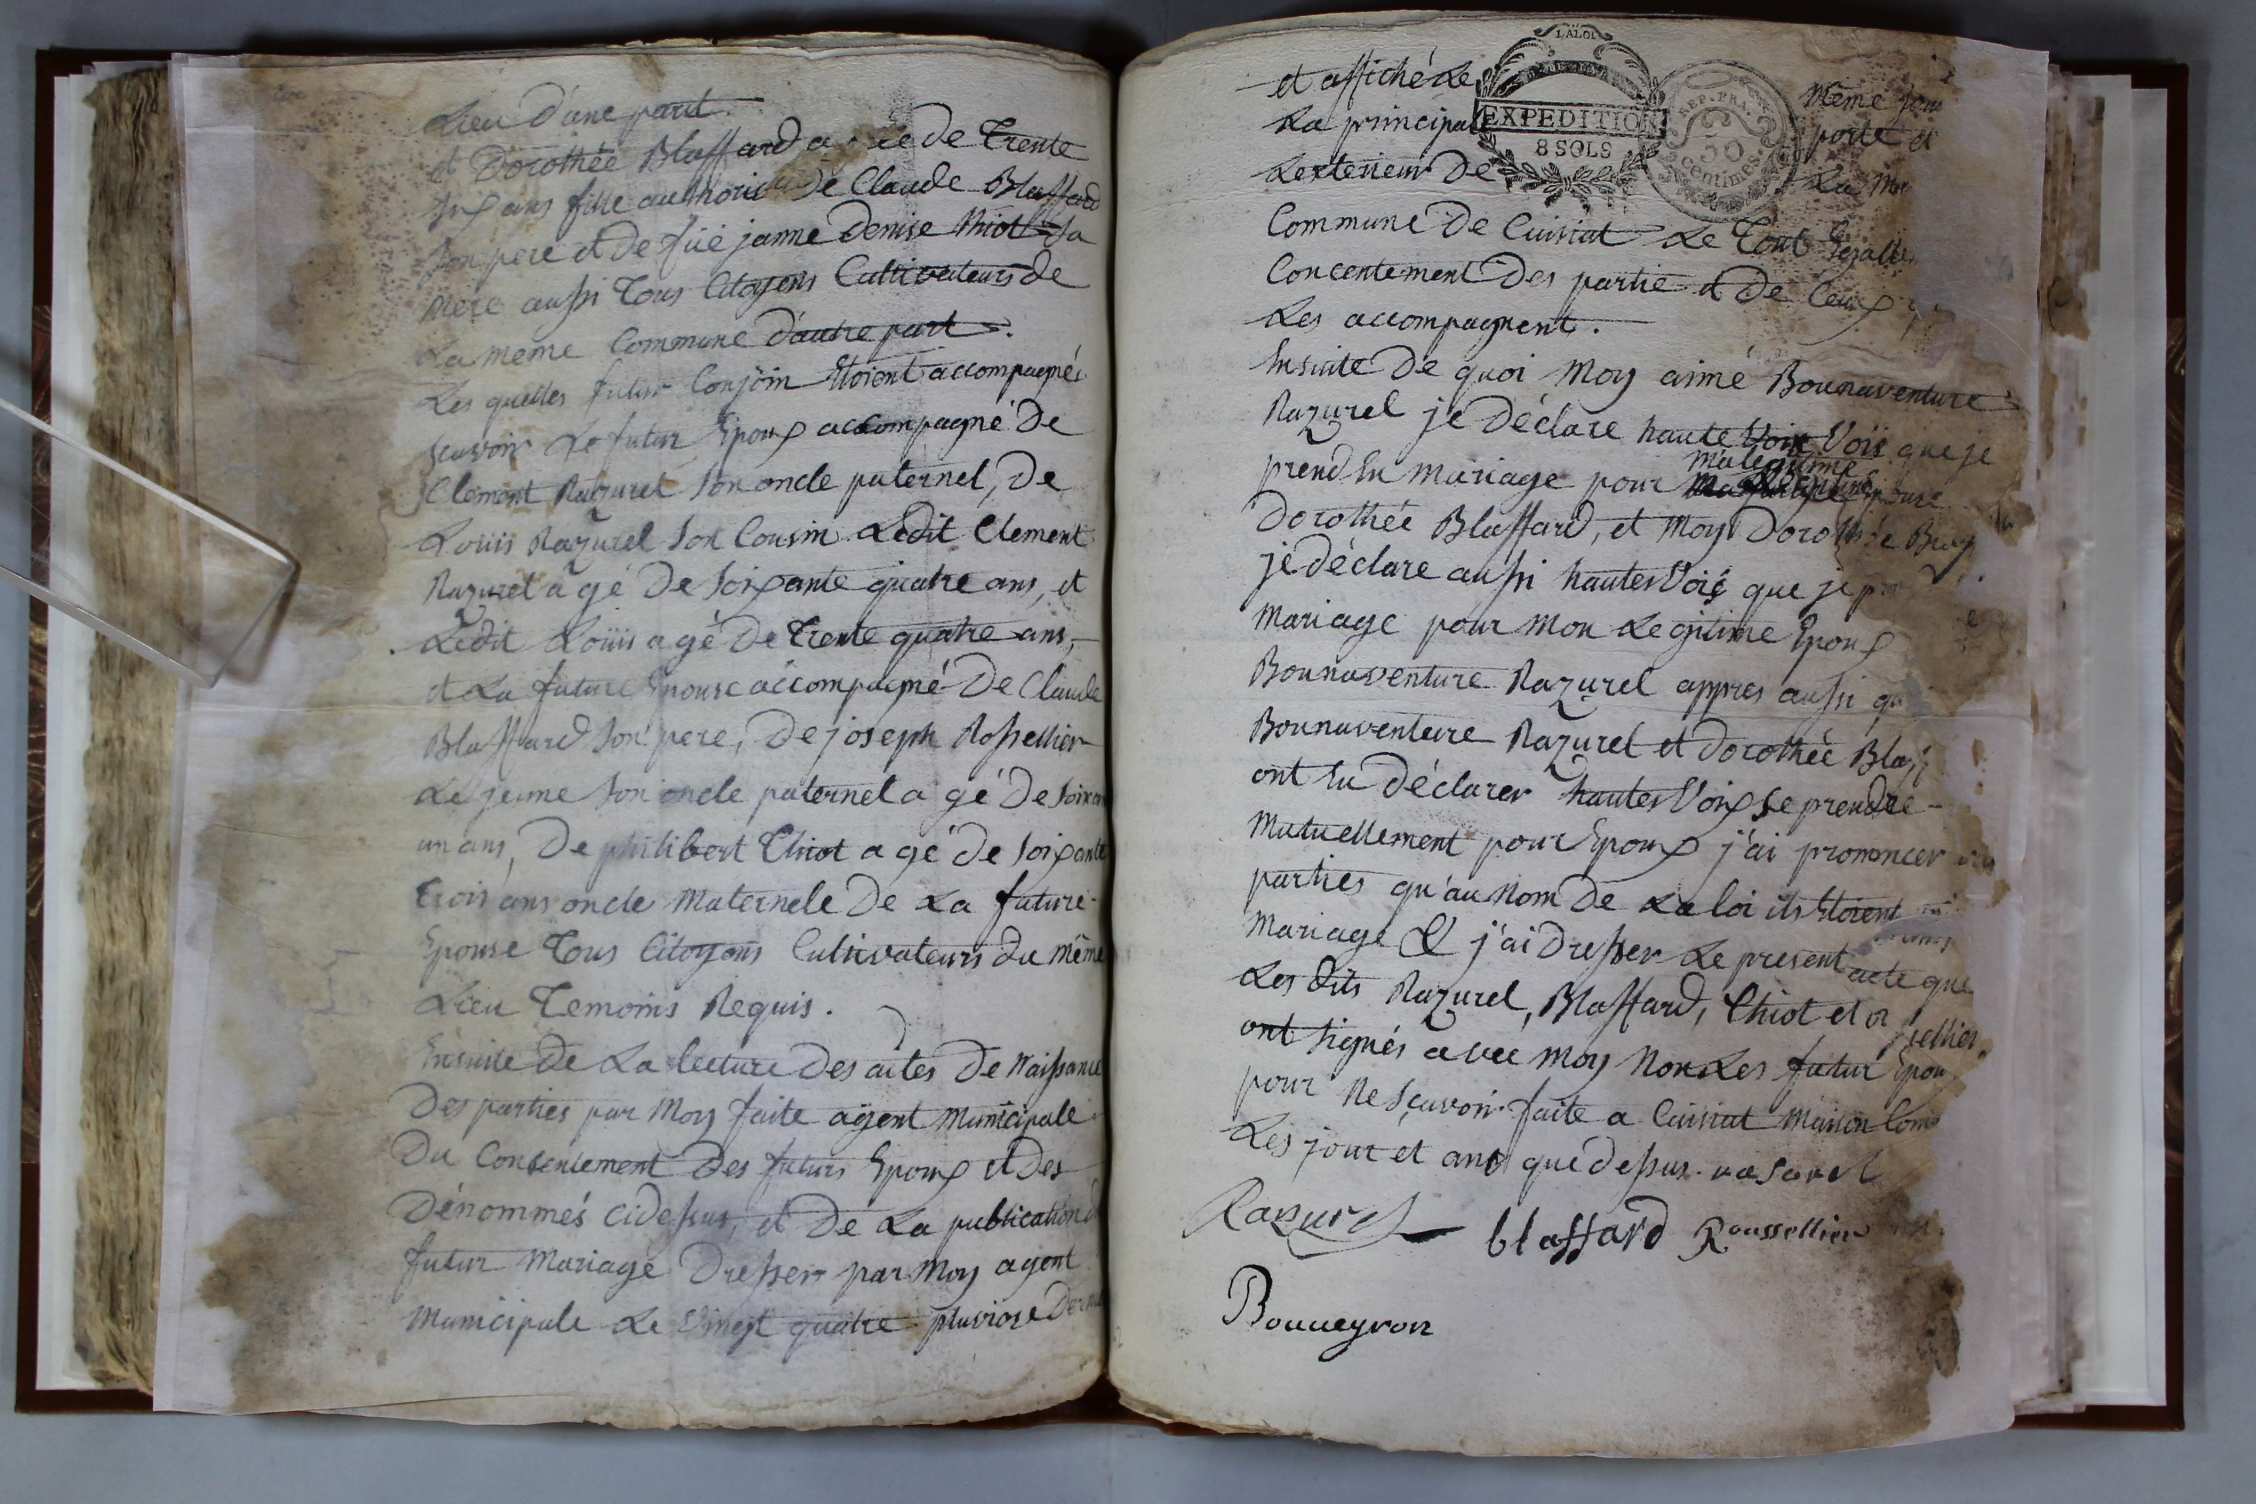 Lieu D'une part.
et Dorothée Blaffard agée de Trente
six ans fille authorisée de Claude Blaffard
son pere et de füe janne Denise Thiot sa
Mere aussi Tous Citoyens Cultivateurs de
La même Commune D'autre part.
Les quelles futur Conjoin Etoient accompagnés
scavoir Le futur Epoux accompagné De
Clement Razurel son oncle paternel, De
Loüis Razurel son Cousin Ledit Clement
Razurel agé De soixante quatre ans, et
Ledit Loüis agé De Trente quatre ans,
et La future Epouse accompagné De Claude
Blaffard son pere, De joseph Rossellier
Le jeune son oncle paternel agé De
un ans, De philibert Thiot agé de soixante
trois ans oncle Maternele De La future
Epouse Tous Citoyens Cultivateurs du même
Lieu Temoins Requis.
Ensuite De La lecture Des actes De Naissance
Des parties par Moy faite agent Municipale
Du Consentement Des futurs Epoux et Des
Dénommés cidessus, et De La publication
futur Mariage Dresser par Moy agent
Municipale Le Vingt quatre pluviose
et affiché Le Même jour
La principale porte
L'exterieur De La
Commune De Cuisiat Le Tout
Concentement Des partie et De Ceux
Les accompagnent.
Ensuite De quoi Moy aimé Bounaventure
Razurel je Déclare haute Voix Voix que je
prend En Mariage pour ma legitime Epouse
Dorothée Blaffard, et Moy Dorothée
je déclare aussi hautes Voix que je
Mariage pour Mon Legitime Epoux
Bounaventure Razurel appres aussi
Bounaventure Razurel et Dorothée
ont Eu déclarer hautes Voix se prendre
Mutuellement pour Epoux j'ai prononcer
parties qu'au Nom De La loi ils Etoient
Mariage & j'ai Dresser Le present acte que
Les dits Razurel, Blaffard, Thiot et
ont signés avec Moy Non Les futur Epoux
pour Ne sçavoir faite a Cuisiat Maison
Les jour et ans que dessus. rasurel
Razurel blaffard Roussellier
Bouueyron
LA LOI
EXPEDITION
8 SOLS
REP. FRA.
50
centimes.